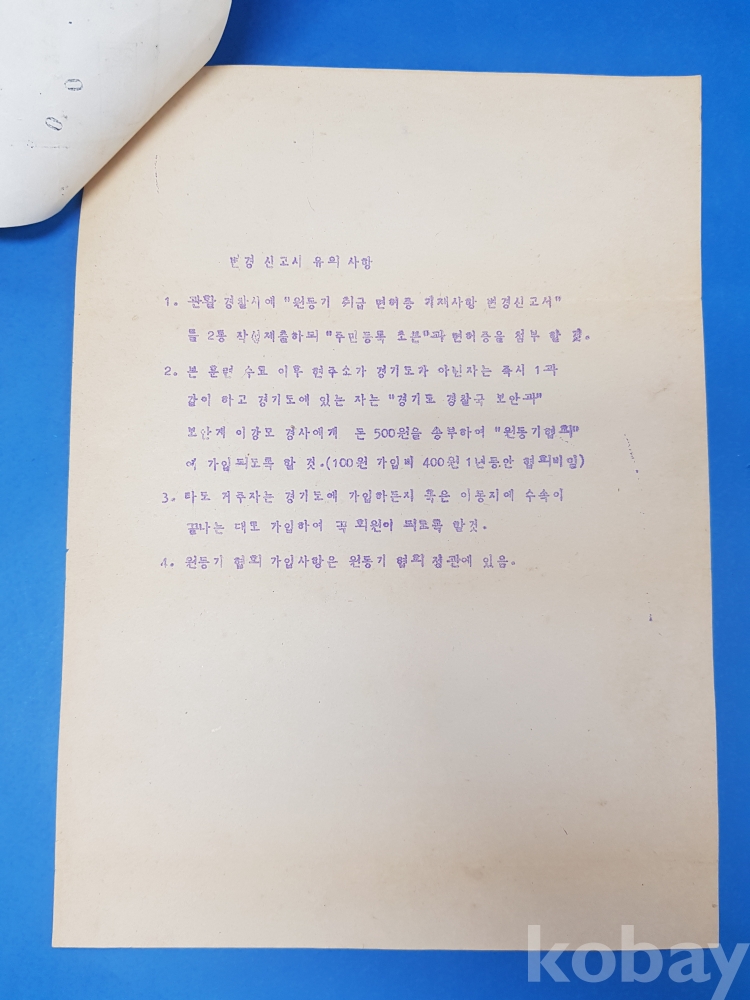 변경 신고시 유의 사항
1. 관활 경찰서에 "원동기 취급 면허증 기재사항 변경신고서"
를 2통 작성제출하되 "주민등록 초본"과 면허증을 첨부 할 것.
2. 본 훈련 수료 이후 현주소가 경기도가 아닌자는 즉시 1과
같이 하고 경기도에 있는 자는 "경기도 경찰국 보안과"
보안계 이강모 경사에게 돈 500원을 송부하여 "원동기협회"
에 가입되도록 할 것.(100원 가입비 400원 1년동안 협회비임)
3. 타도 거주자는 경기도에 가입하든지 혹은 이동지에 수속이
끝나는 대로 가입하여 꼭 회원이 되도록 할것.
4. 원동기 협회 가입사항은 원동기 협회 정관에 있음.
kobay